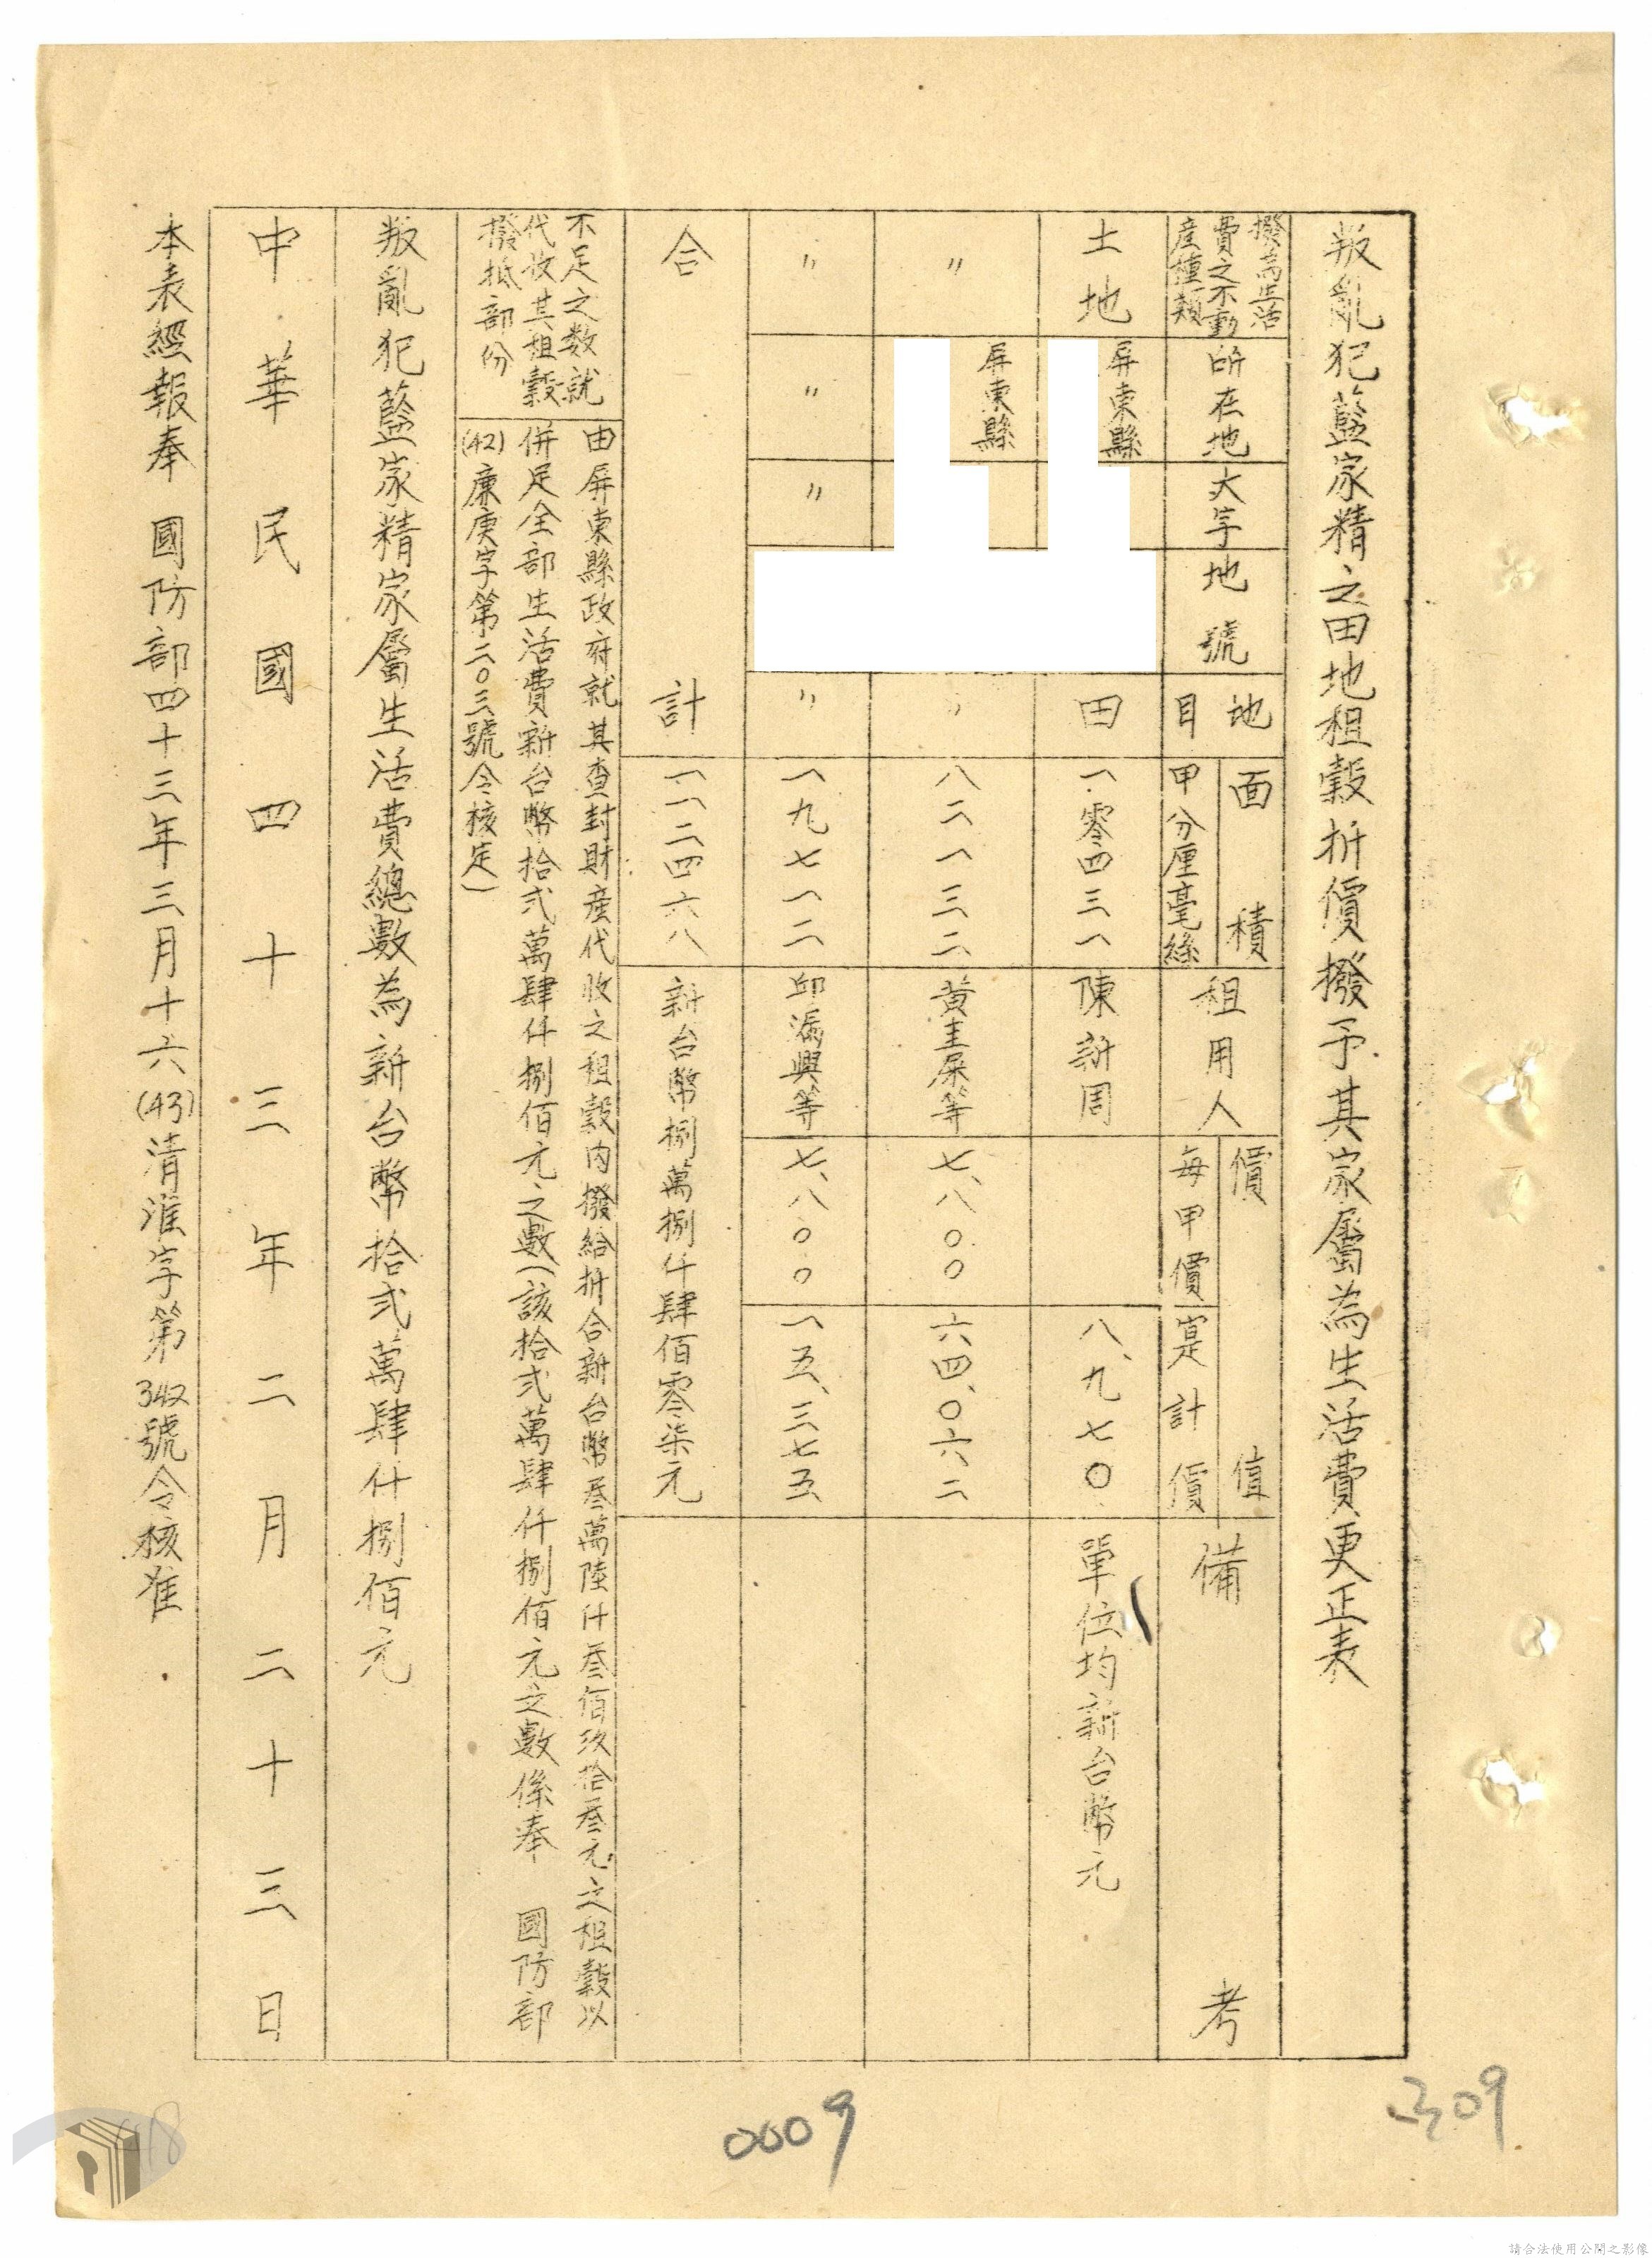 叛亂犯藍家精之田地租穀折價撥予其家屬為生活費更正表
撥高生活
費之不動
產種類
所在地
大字
地號
地目
面積
甲分厘毫絲
租用人
價值
每甲價
寔計價
備考
土地
屏東縣
田
一零四三一
陳新周
八、九七〇
單位均新台幣元
〃
屏東縣
〃
八二一三二
黃圭屎等
七、八〇〇
六四、〇六二
〃
〃
〃
〃
一九七一二
邱滿興等
七、八〇〇
一五、三七五
合計
一一二四六八
新台幣捌萬捌仟肆佰零柒元
不足之数就
代收其租穀
撥抵部份
由屏東縣政府就其查封財產代收之租穀内撥給折合新台幣叁萬陸仟叁佰玖拾叁元之租穀以
併足全部生活費新台幣拾弍萬肆仟捌佰元之數(該拾弍萬肆仟捌佰元之數係奉 國防部
(42)廉庚字第二〇三號令核定)
叛亂犯藍家精家屬生活費總數為新台幣拾弍萬肆仟捌佰元
中華民國四十三年二月二十三日
本表經報奉 國防部四十三年三月十六(43)清淮字第342號令核准
0009
309
18
請合法使用公開之影像